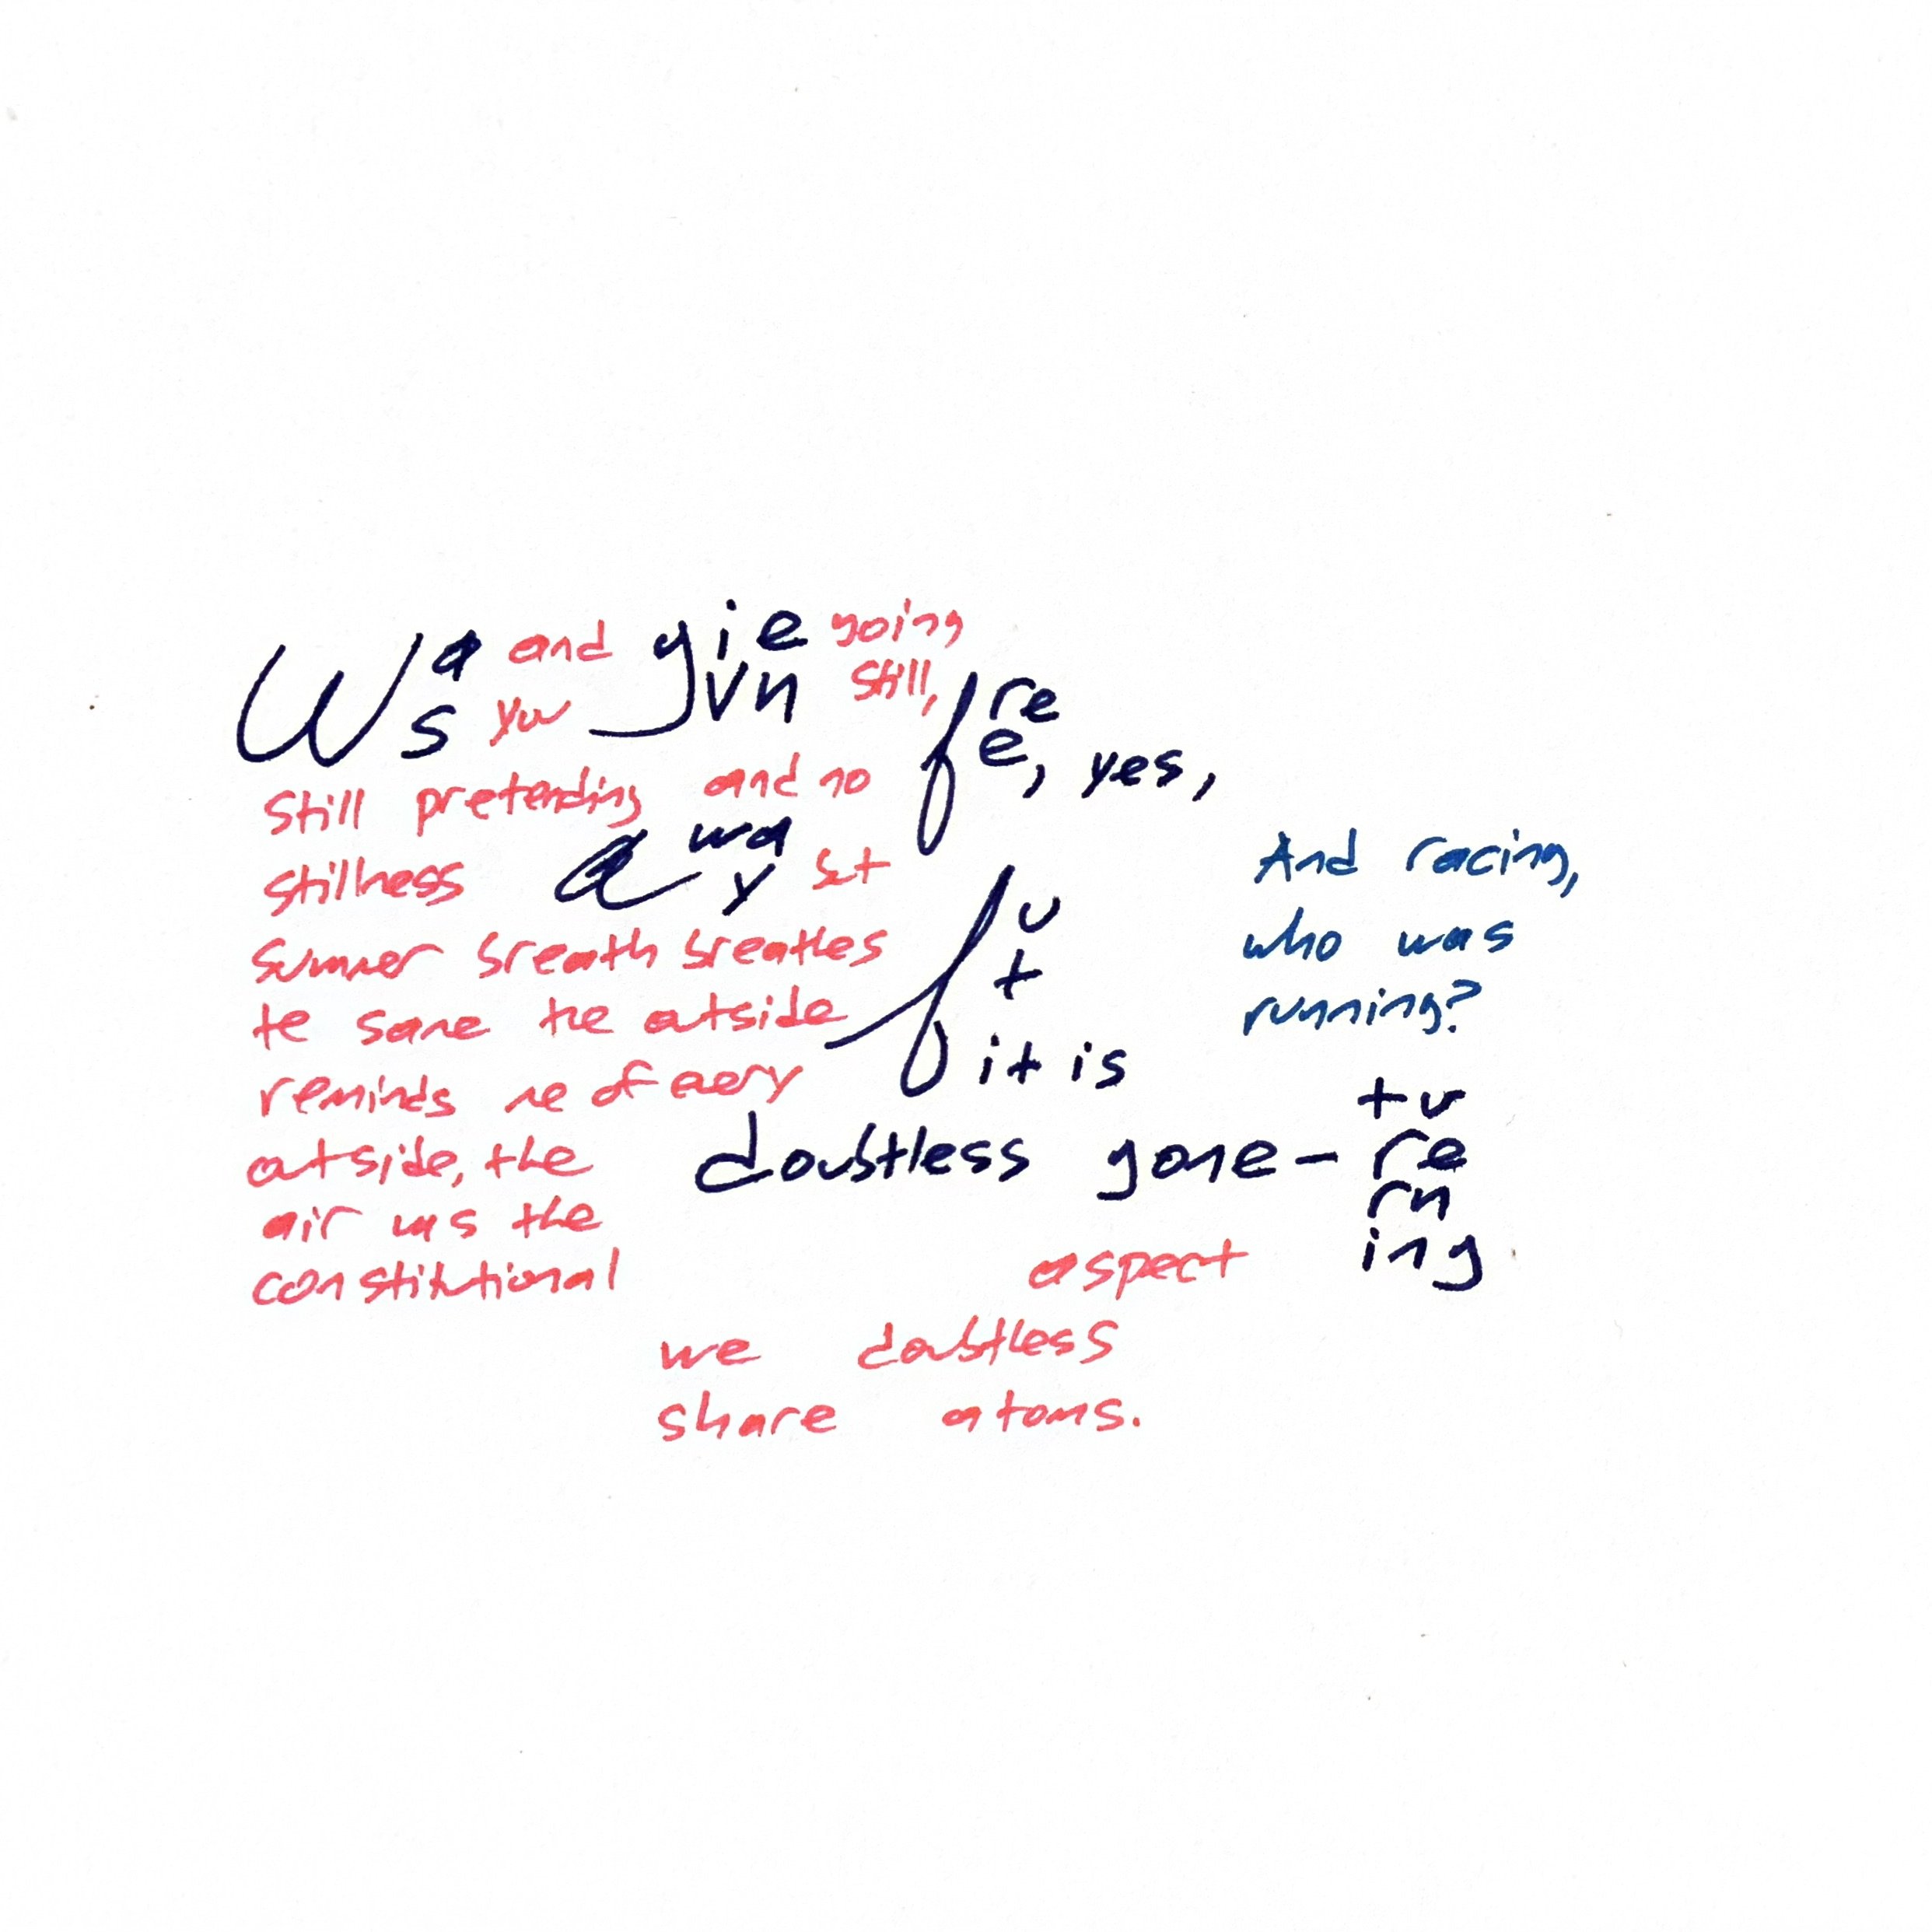 Was and given going
you still, free, yes,
still pretending and no
stillness away but
And racing,
summer breath breathes fut
who was
te same the outside
running?
reminds me of every it is
tu
outside, the doubtless gone - re
air was the rn
constitutional aspect ing
we doubtless
share atoms.